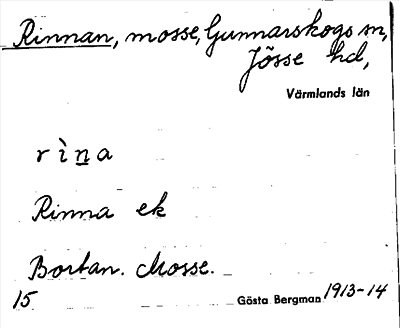 Rinnan, mosse, Gunnarskogs sn,
Jösse hd,
Värmlands län
rìna
Rinna ek
Bortan. Mosse.
15 Gösta Bergman 1913-14